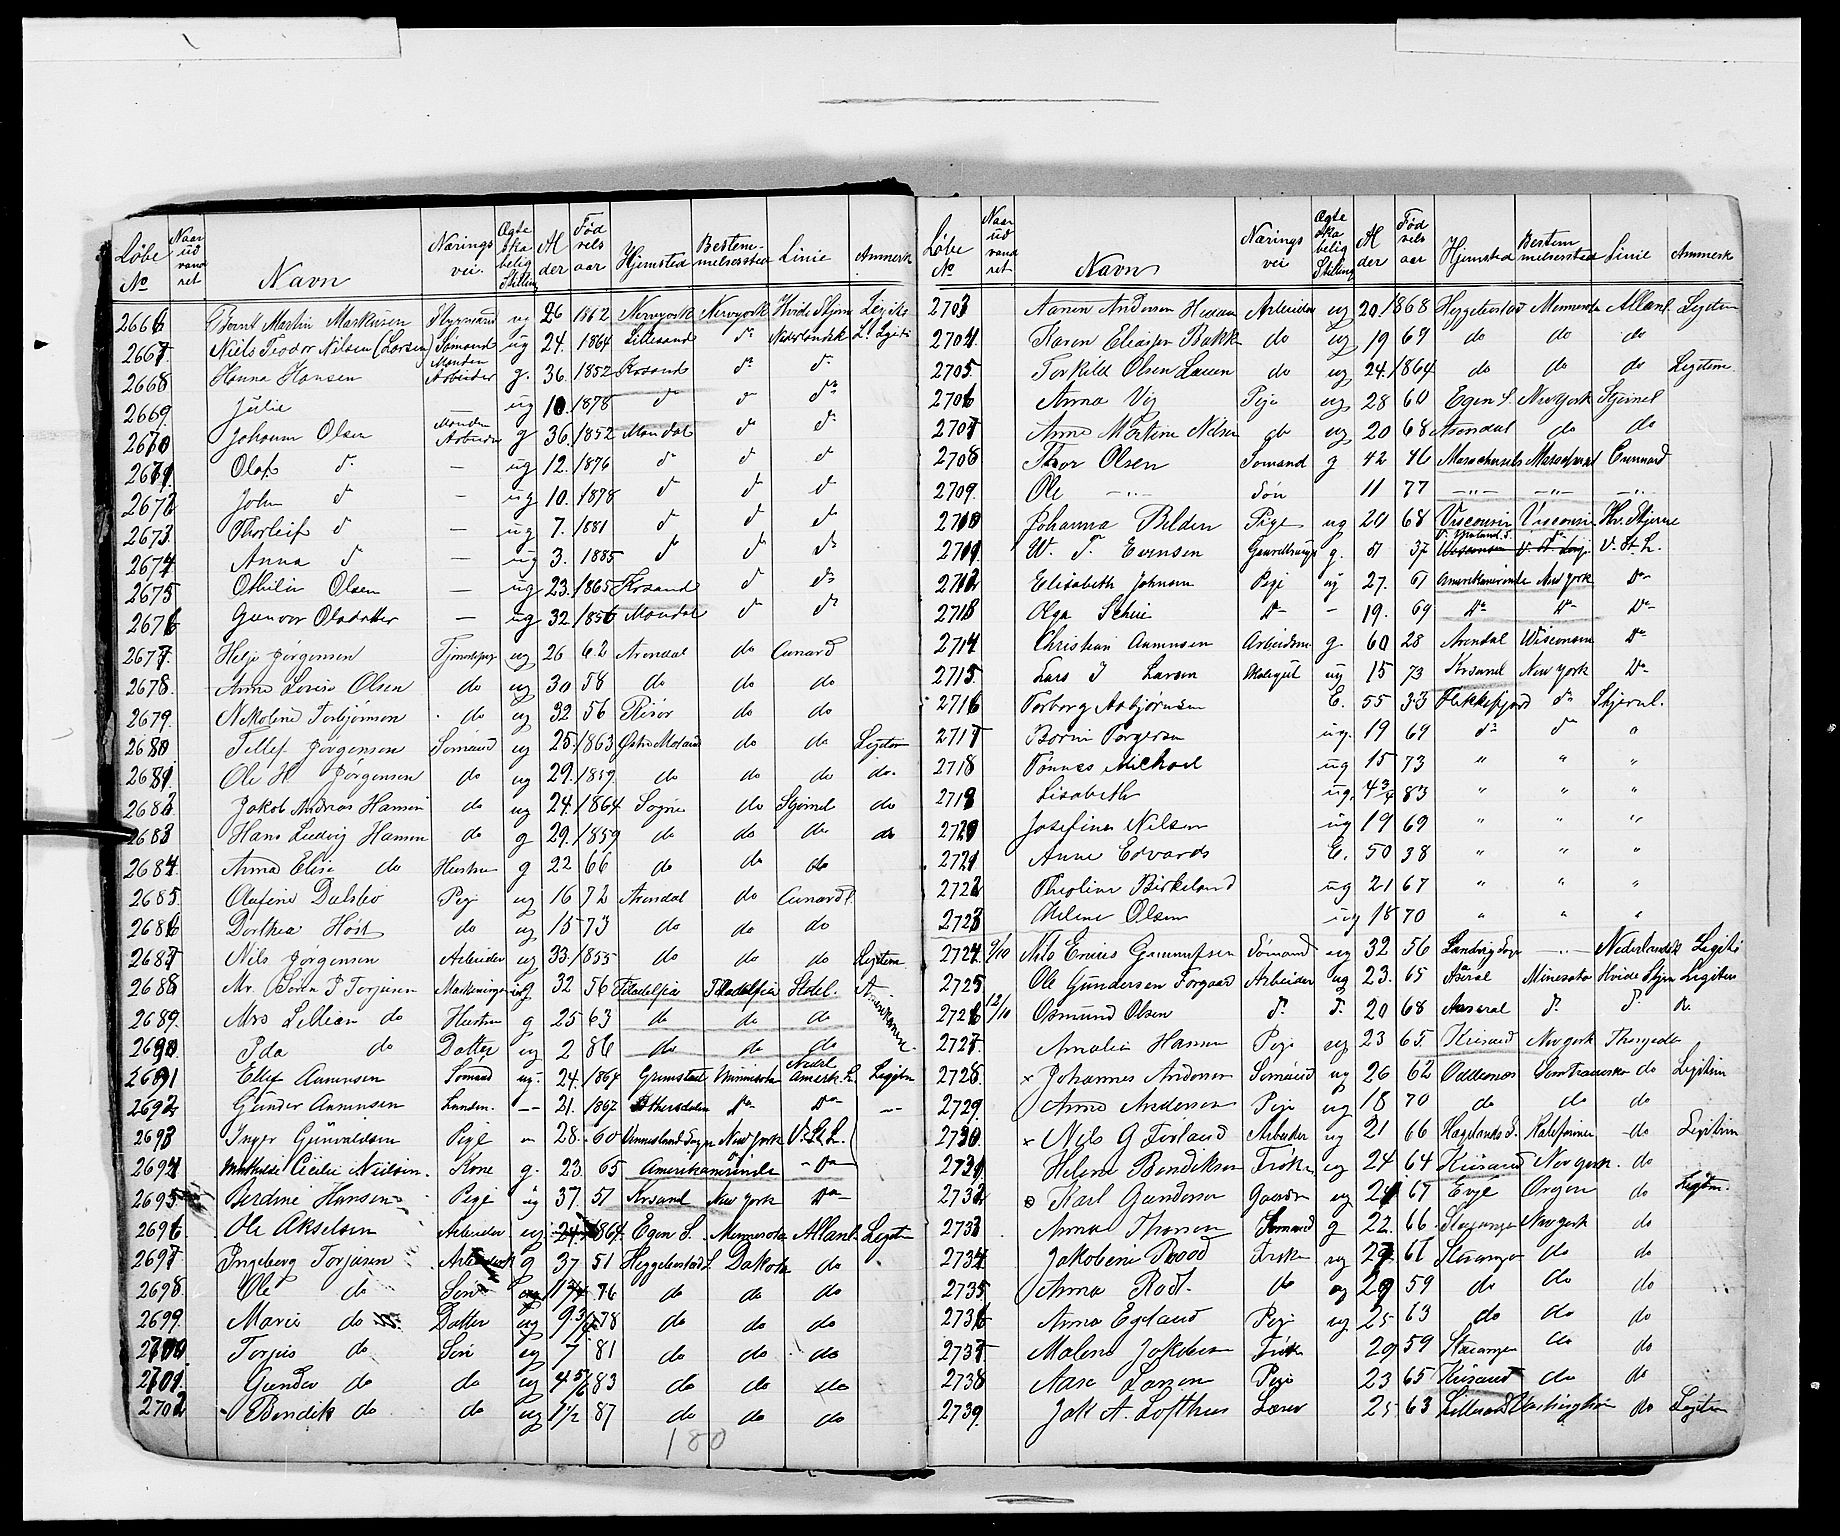 Løbe No Naar ud vand ret Navn Nærings vei. Ægte ska belig Stilling Al der Fød sels aar Hjemsted Bestem- melsessted Linie Anmerk
2666 Bernt Martin Markusen ug 26 1862 Newyork Newyork Hvide Stjern Legitis
2667 Niels Teodor Nilsen (Larsen) Sømand ug 24. 1864 Lillesand do Nederlandsk L. Legiti
2668 Hanna Hansen Manden Arbeider g. 36. 1852 Krsand do do
2669. Julie ug 10. 1878 do do do
2670 Johanne Olsen Manden Arbeider g 36. 1852 Mandal do do
2671 Olaf do — ug 12. 1876 do do do
2672 John do — ug 10. 1878 do do do
2673. Thorleif do — ug 7. 1881 do do do
2674 Anna do — ug 3. 1885 do do do
2675 Othilie Olsen — ug 23. 1865 Krsand do do
2676 Gunvor Olsdatter — ug 32. 1856 Mandal do do
2677. Helje Jørgensen Tjenestepige ug 26 62 Arendal do Cunard
2678. Anne Lovise Olsen do ug 30 58 do do do
2679. Nikoline Torbjørnsen do ug 32 56 Risør do do
2680 Tellef Jørgensen Sømand ug 25. 1863 Østre Moland do do Legitim
2681. Ole H. Jørgensen do ug 29. 1859. do do do do.
2682 Jakob Andreas Hansen do ug 24. 1864 Sogne do Stjernel do
2683 Hans Ludvig Hansen do g 29. 1859 do do do do
2684 Anna Elise do Hustru g 22 66 do do do
2685 Olafine Dalsbo Pige ug 16 72 Arendal do Cunardl.
2686 Dorthea Höst do ug 15 73 do do do
2687 Nils Jørgensen Arbeider ug 33. 1855 do do do Legitim.
2688 Mr. Sören P. Torjusen g 32 56 Filadelfia Filadelfia Amerikaner
2689. Mrs Lillian do Hustru g 25 63 do do do
2690. Ida do Datter ug 2 86 do do do
2691 Ellef Aanensen Sømand ug. 24. 1864 Grimstad Minnisota Amerk. L. Legitim
2692 Gunder Aanensen -- 21. 1867 do do --
2693 Inger Gunvaldsen Pige " 28. 60 New York V. St. L.
2694 Mathilde Cicilie Neilsen. Kone g. 23 65 Amerikanerinde do
2695 Berdine Hansen Pige ug 37. 51 Krsand New York do
2696 Ole Akselsen Arbeider ug 24. 1864 Egen S. Minnesota Allanl. Legitim
2697 Ingeborg Torjusen g 37 51 Heggebostad S. Dakota do
2698. Ole do Søn ug 11¾ 76 do do do
2699. Marie do Datter ug 9 78 do do do
2700. Torjus do Søn ug 7 81 do do do
2701. Gunder do do ug 4 5/6 83 do do do
2702 Bendik do do ug 1½ 87 do do do
180
Løbe No Naar ud vand ret Navn Nærings vei Ægte ska belig Stilling Al der Fød sels aar Hjemsted Bestem melsessted Linie Anmerk
2703 Aanen Andersen Arbeider ug 20. 1868 Heggebostad Minnesota Allanl. Legitim
2704 Karen Bakke do ug 19 69 do do do
2705 Torkild Olsen do ug 24. 1864 do do do Legitim.
2706 Anna Vig Pige ug 28 60 Egen S. Newyork Stjernel
2707 Anne Martine Nilsen do ug 20 68 Arendal do do
2708 Thor Olsen Sømand g 42 46 Massachusets Massachusets Cunnard
2709. Ole —"— Søn 11 77 —"— —"— —"—
2710 Johanna Belden Pige ug 20 68 Visconsin Visconsin Hv. Stjerne
2711 W. T. Evensen g. 51 37 V. St. L.
2712 Elisabeth Johnsen Pige ug 27. 61 Amerikanerinde New York do
2713 Olga Schie do - 19. 69 do do do
2714 Christian Aanensen Arbeidsm g 60 28 Arendal Wisconsin do
2715 Lars J Larsen ug 15 73 Krsand New York do
2716 Torborg Asbjørnsen E. 55 33 Flekkefjord do Stjernl.
2717 Borni Torgersen ug. 19 69 do do "
2718 Tønnes Michael ug 15 73 " " "
2719 Lisabeth ug. 4¾ 83 " " "
2720 Josefine Nilsen ug 19 69 " " "
2721 Anne Edvards E. 50 38 " " "
2722 Theoline Birkeland ug 21 67 " " "
2723 Helene Olsen ug 18 70 " " "
2724 9/10 Nils Enius Gunnufsen Sømand ug 32 56 Nederlandsk Legitis
2725 Ole Gundersen Forgaard Arbeider ug 23. 65 Aaseral Minesota Hvide Stjern Legitim
2726 12/10 Osmund Olsen do. do. 20 68 Aaseral do. do
2727. Amalie Hansen Pige ug 23 65. Krisand Newyork Thingvalla
2728. × Johannes Andersen Sømand ug 26 62 Oddernes San Francisko do Legitim
2729. Anne Andersen Pige ug 18 70 do do do
2730. × Nils G Forland Arbeider ug 21 66 Hægelands S. Kalifornien do Legitim
2731 Helene Bendiksen Frøken ug 24 64 Krisand Newyork. do
2732 Karl Gundersen ug 21 67 Evje Oregon do Legitim.
2733 Anna Thorsen Sømand g 22 66 Stavanger Newyork do
2734 Jakobine Rood Frøken ug 27. 61 Stavanger do do
2735 Anna Rodt. do ug 29 59 do do do
2736 Anna Egeland Pige ug 25 63 do do do
2737 Malene Jakobsen Frøken 29 59 Stavanger do do
2738 Aase Larsen Pige 23 65 Krisand do do
2739. Jak A. Lofthus Lærer 25 63 Lillesand Vashington do Legitim